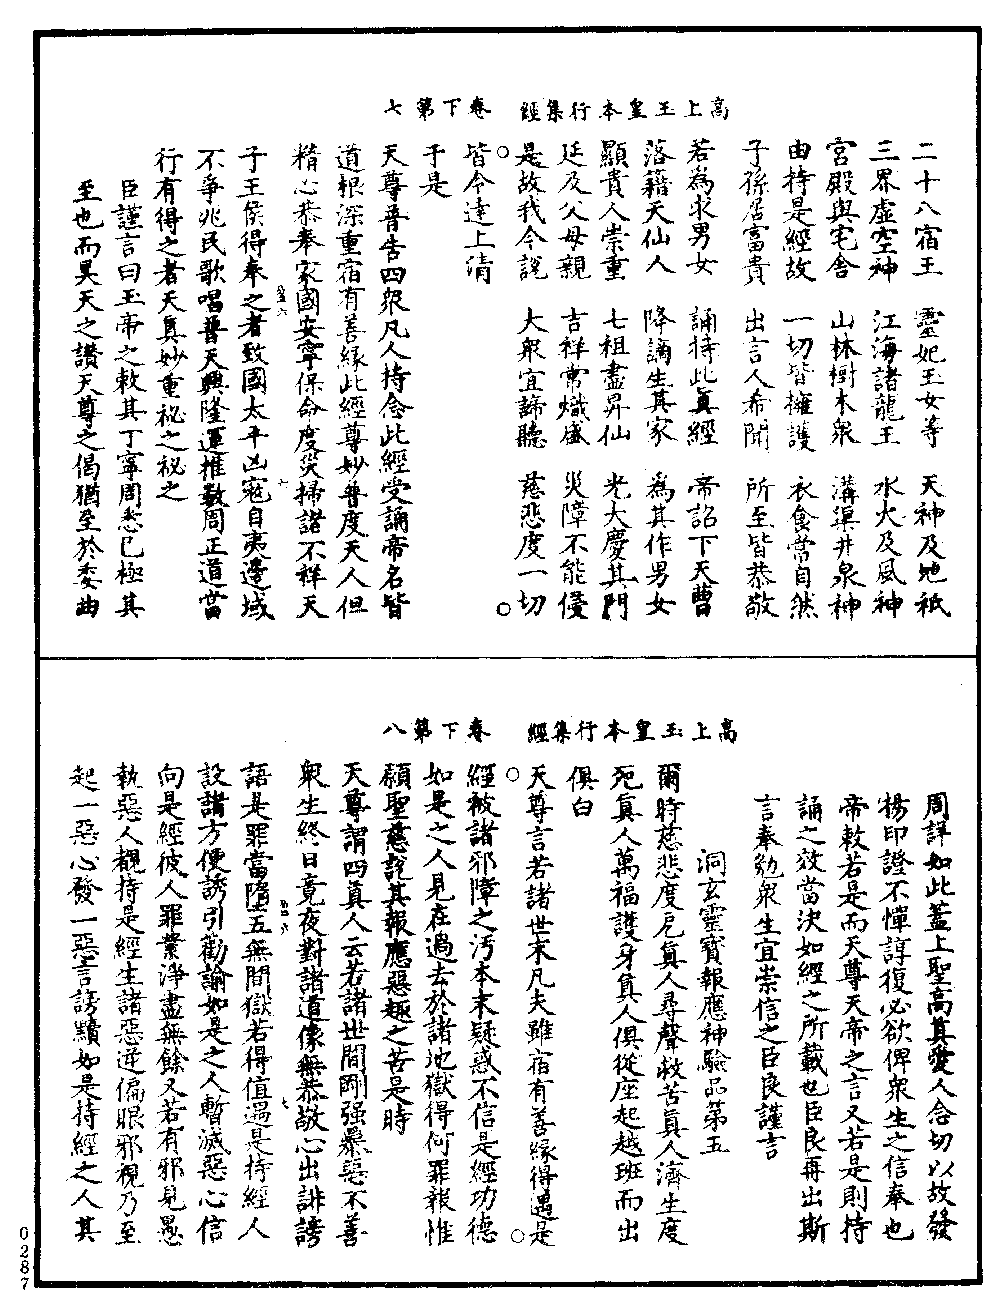 高上玉皇本行集經　卷下第七
二十八宿王　靈妃玉女等　天神及地祇
三界虛空神　江海諸龍王　水火及風神
宮殿與宅舍　山林樹木衆　溝渠井泉神
由持是經故　一切皆擁護　衣食常自然
子孫居富貴　出言人希聞　所至皆恭敬
若為求男女　誦持此眞經　帝詔下天曹
落籍天仙人　降謫生其家　為其作男女
顯貴人崇重　七祖盡昇仙　光大慶其門
延及父母親　吉祥常熾盛　災障不能侵
是故我今說　大衆宜諦聽　慈悲度一切
皆令達上清
于是
天尊普告四衆凡人持念此經受誦帝名皆
道根深重宿有善緣此經尊妙普度天人但
精心恭奉家國安寧保命度災掃諸不祥天
子王侯得奉之者致國太平凶寇自夷邊域
不爭兆民歌唱普天興隆運推數周正道當
行有得之者天眞妙重祕之祕之
臣謹言曰玉帝之敕其丁寧周悉已極其
至也而昊天之讚天尊之偈猶至於委曲
高上玉皇本行集經　卷下第八
周詳如此蓋上聖高眞愛人念切以故發
揚印證不憚諄復必欲俾衆生之信奉也
帝敕若是而天尊天帝之言又若是則持
誦之效當決如經之所載也臣良再出斯
言奉勉衆生宜崇信之臣良謹言
洞玄靈寶報應神驗品第五
爾時慈悲度厄眞人尋聲救苦眞人濟生度
死眞人萬福護身眞人俱從座起越班而出
俱白
天尊言若諸世末凡夫雖宿有善緣得遇是
經被諸邪障之污本末疑惑不信是經功德
如是之人見在過去於諸地獄得何罪報惟
願聖慈說其報應惡趣之苦是時
天尊謂四眞人云若諸世間剛强暴惡不善
衆生終日竟夜對諸道像無恭敬心出誹謗
語是罪當墮五無間獄若得值遇是持經人
設諸方便誘引勸諭如是之人暫滅惡心信
向是經彼人罪業淨盡無餘又若有邪見愚
執惡人觀持是經生諸惡逆偏眼邪視乃至
起一惡心發一惡言謗黷如是持經之人其
0287